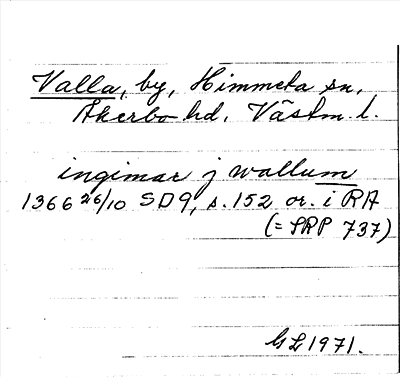 Valla, by, Himmeta sn,
Åkerbo hd. Västm. l.
ingimar j wallum
1366 26/10 SD9, s.152 or. i RA
(= SRP 737)
GL 1971.